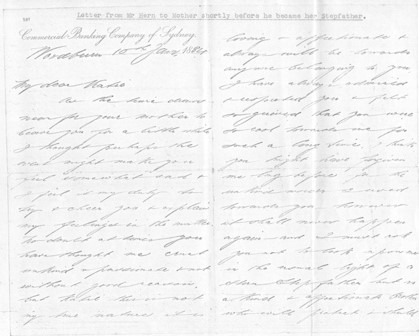 Letter from Mr Hern to Mother shortly before he became her Stepfather.
Commercial Banking Company of Sydney,
Woodburn 12th Jany 188
My dear
As the time draws
near for your mother to
leave you for a little while
I thought perhaps the
event might make you
feel somewhat sad &
I feel it my duty to
try & allay you & explain
my feelings in the matter
No doubt at times you
have thought me cruel
unkind & passionate &
without good reason
but that is not
my true nature it is
loving & affectionate &
always will be towards
anyone belonging to you
I have always admired
& respected you & felt
so grieved that you were
so cool towards me for
such a long time, I hate
you might have forgiven
me long before for the
unkind manner I used
towards you however
it shall never happen
again and I must ask
you not to look upon me
in the usual light of a
step father but as
a kind & affectionate
who will protect &